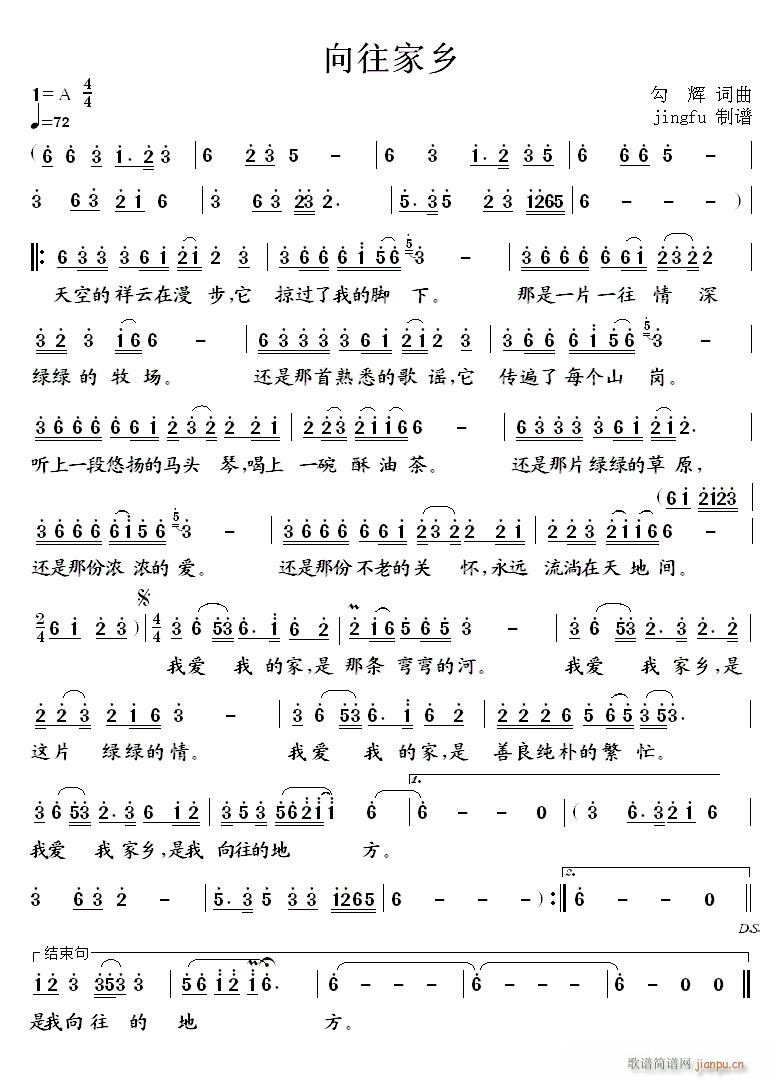 向往家乡
1=A 4/4
勾 辉 词曲
♩=72
jingfu 制谱
(6 6 3 1· 2 3 | 6 2 3 5 - | 6 3 1· 2 3 5 | 6 6 6 5 - |
3 6 3 2 1 6 | 3 6 3 23 2· | 5· 3 5 2 3 1265 | 6 - - - )
‖: 6 3 3 3 6 1 2 1 2 3 | 3 6 6 6 1 5 6 5 3 - | 6 1 6 6 6 1 2 3 2 2 |
天空的祥云在漫 步,它 掠过了我的脚 下。 那是一片一往 情 深
3 2 3 1 6 6 - | 6 3 3 3 3 6 1 2 1 2 3 | 3 6 6 6 1 5 6 5 3 - |
绿绿 的 牧 场。 还是那首熟悉的歌 谣,它 传遍了每个山 岗。
3 6 6 6 6 6 1 2 3 2 2 2 1 | 2 2 3 2 1 1 6 6 - | 6 3 3 3 3 6 1 2 1 2· |
听上一段悠扬的马头 琴,喝上 一碗 酥油茶。 还是那片绿绿的草 原,
(6 1 2123
3 6 6 6 6 1 5 6 5 3 - | 3 6 6 6 6 6 1 2 3 2 2 2 1 | 2 2 3 2 1 1 6 6 - |
还是那份浓 浓的 爱。 还是那份不老的关 怀,永远 流淌在天 地 间。
2/4 6 1 2 3 ) | 4/4 3 6 53 6· 1 6 2 | 2 1 6 5 6 5 3 - | 3 6 53 2· 3 2 2 |
我爱 我 的家,是 那条 弯弯的河。 我爱 我 家乡,是
2 2 3 2 1 6 3 - | 3 6 53 6· 1 6 2 | 2 2 2 6 5 6 5 353· |
这片 绿绿的情。 我爱 我 的家,是 善良纯朴的繁 忙。
1.
3 6 53 2· 3 6 1 2 | 3 5 3 3 562 1 1 | 6 6 - - 0 | (3 6· 3 2 1 6 |
我爱 我 家乡,是我 向往的地 方。
2.
3 6 3 2 - | 5· 3 5 3 3 1265 | 6 - - - ) :‖ 6 - - 0 ‖
D.S.
结束句
1 2 3 353 3 | 5 6 1 2 1 6· | 6 - - - | 6 - - - | 6 - - - ‖
是我向 往 的 地 方。
歌谱简谱网
jianpu.cn